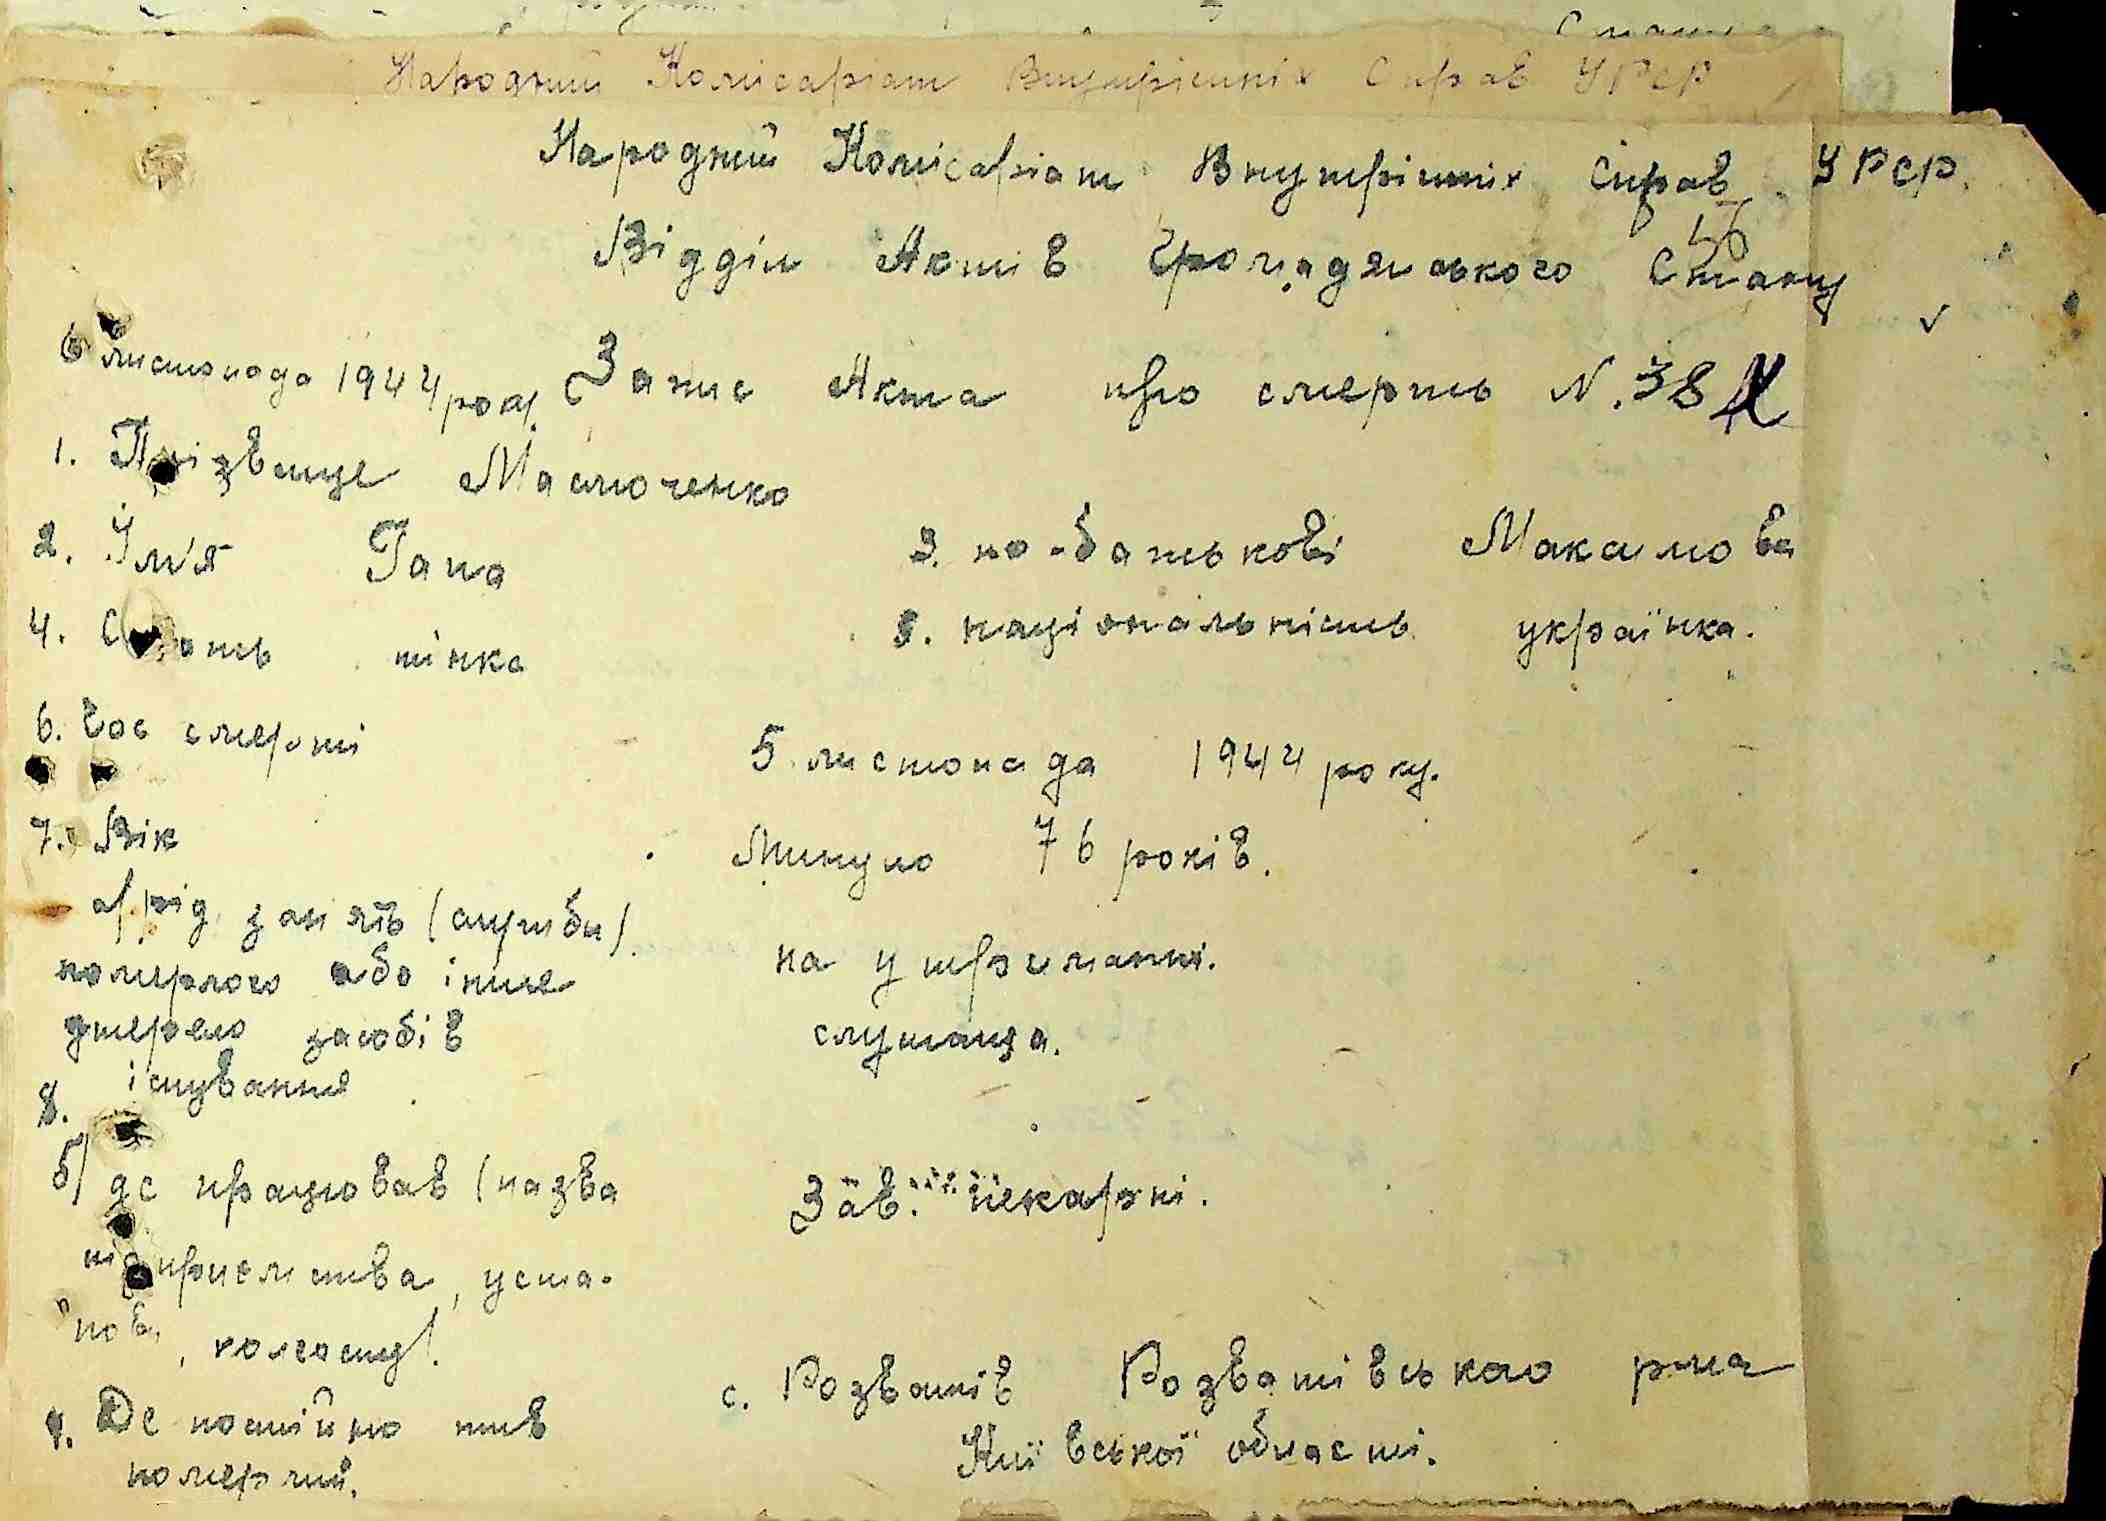 Народний Комісаріат Внутрішніх Справ УРСР
Народний Комісаріат Внутрішніх Справ УРСР.
Відділ Актів Громадянського Стану
6 листопада 1944 року. Запис Акта про смерть N. 38
1. Прізвище Маслюченко
2. Ім'я Гана 3. по-батькові Максимова
4. Стать жінка 5. національність українка.
6. Час смерті 5 листопада 1944 року.
7. Вік Минуло 76 років.
а/ рід занять (служби) на утриманні.
померлого або інше
джерело засобів службовця.
існування
8.
б/ де працював (назва Зав. пекарні.
підприємства, уста-
нови, колгоспу).
9. Де постійно жив с. Розважів Розважівського р-на
померлий. Київської області.